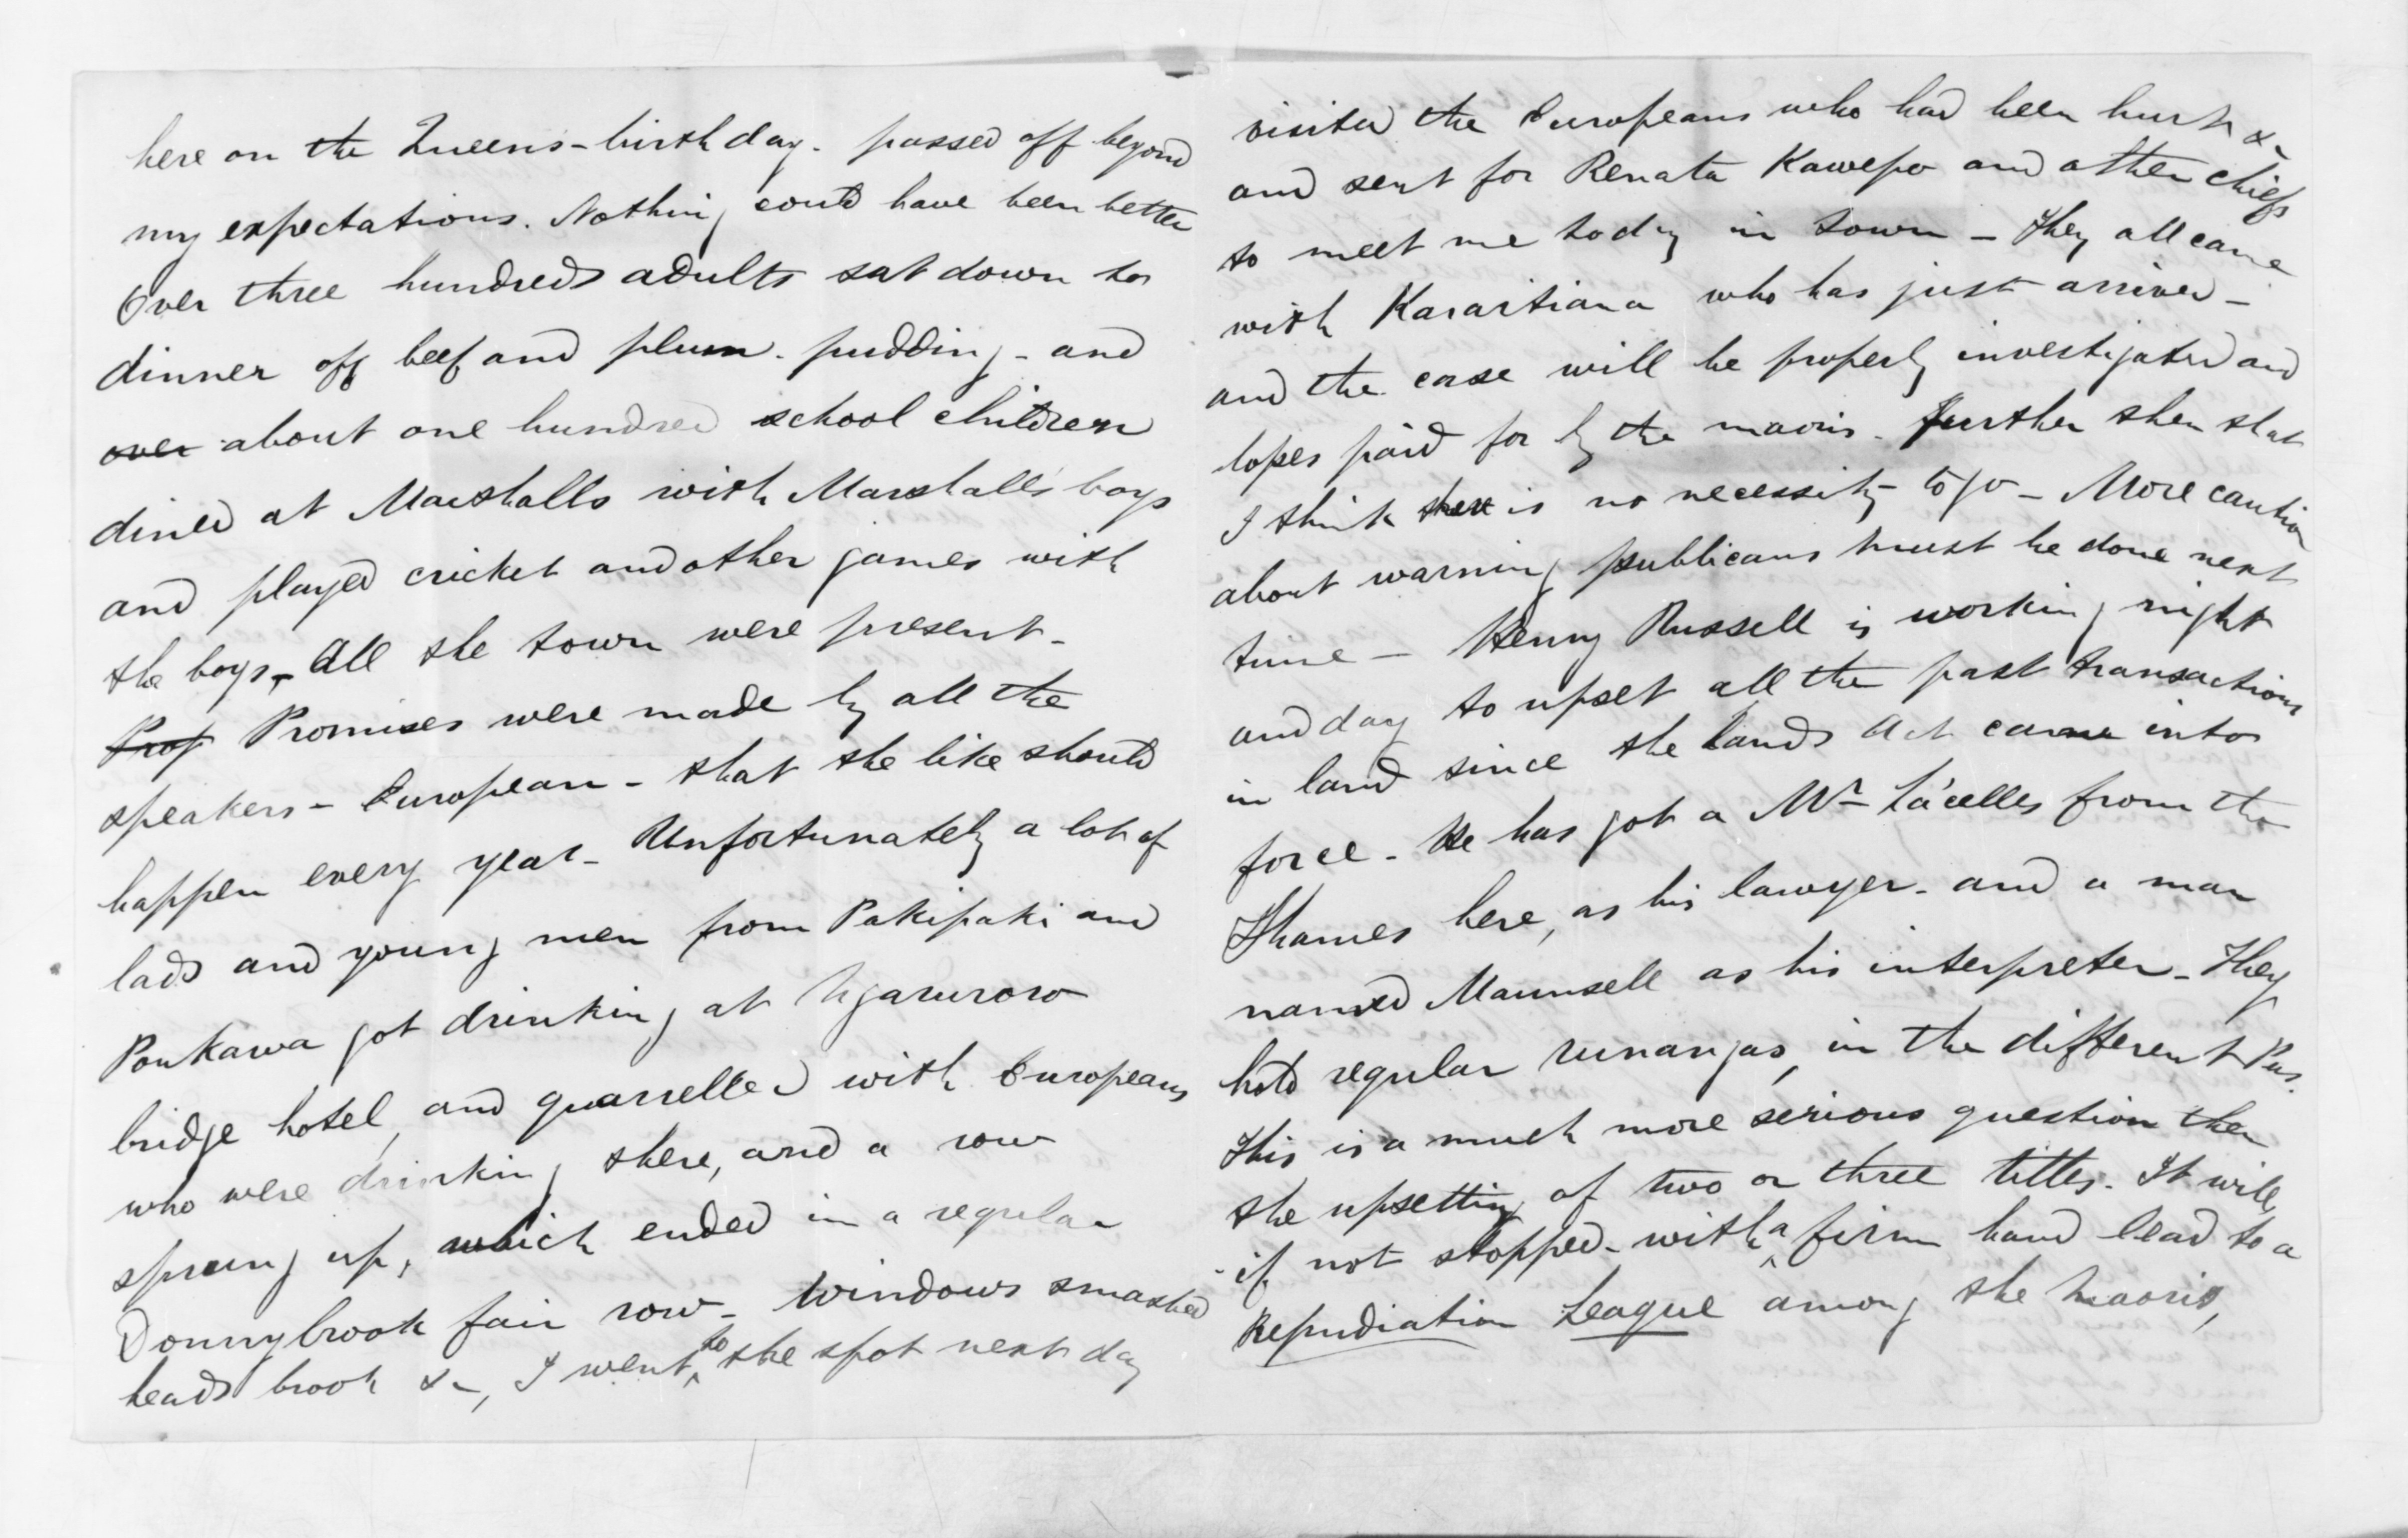 here on the Queens-birthday. passed off beyond
my expectations. Nothing could have been better
Over three hundreds adults sat down to
dinner off beef and plum-pudding - and
over about one hundred school children
dined at Marshalls with Marshalls boys
and played cricket and other games with
the boys - All the town were present -
Prop Promises were made by all the
speakers - European - that the like should
happen every year - Unfortunately a lot of
lads and young men from Pakipaki and
Poukawa got drinking at Ngaruroro
bridge hotel, and quarrelled with Europeans
who were drinking there, and a row
sprung up, which ended in a regular
Donnybrook fair row - Windows smashed
heads brook &c, I went to the spot next day
visited the Europeans who had been hurt &c
and sent for Renata Kawepo and other chiefs
to meet me today in town - They all came
with Karaitiana who has just arrived -
and the case will be properly investigated and
loses paid for by the maoris. further then that
I think there is no necessity to go - More caution
about warning publicans must be done next
time - Henry Russell is working night
and day to upset all the past transactions
in land since the Lands Act came into
force - He has got a Mr Lacelles from the
Thames here, as his lawyer - and a man
named Maunsell as his interpreter - They
hold regular runangas, in the different Pas.
This is a much more serious question then
the upsetting of two or three titles. It will,
if not stopped - with a firm hand lead to a
Repudiation League among the Maoris,